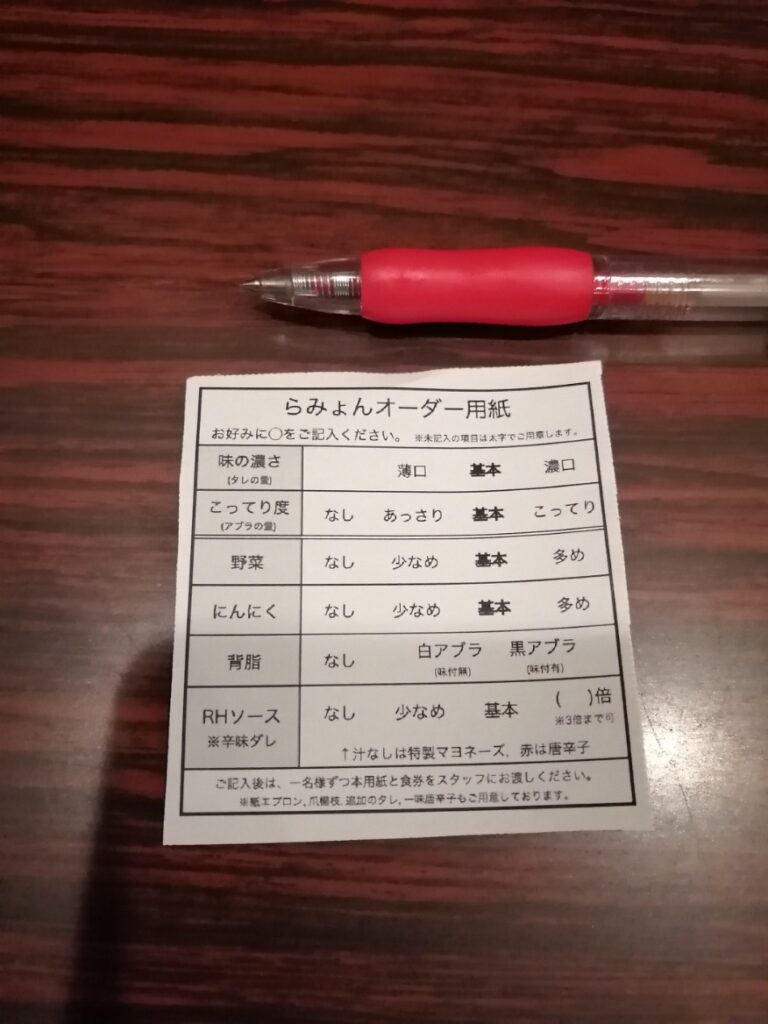 らみょんオーダー用紙
お好みに○をご記入ください。 ※未記入の項目は太字でご用意します。
味の濃さ 薄口 基本 濃口
(タレの量)
こってり度 なし あっさり 基本 こってり
(アブラの量)
野菜 なし 少なめ 基本 多め
にんにく なし 少なめ 基本 多め
背脂 なし 白アブラ 黒アブラ
(味付無) (味付有)
RHソース なし 少なめ 基本 ( )倍
※辛味ダレ ※3倍まで可
↑汁なしは特製マヨネーズ, 赤は唐辛子
ご記入後は、一名様ずつ本用紙と食券をスタッフにお渡しください。
※紙エプロン, 爪楊枝, 追加のタレ, 一味唐辛子もご用意しております。